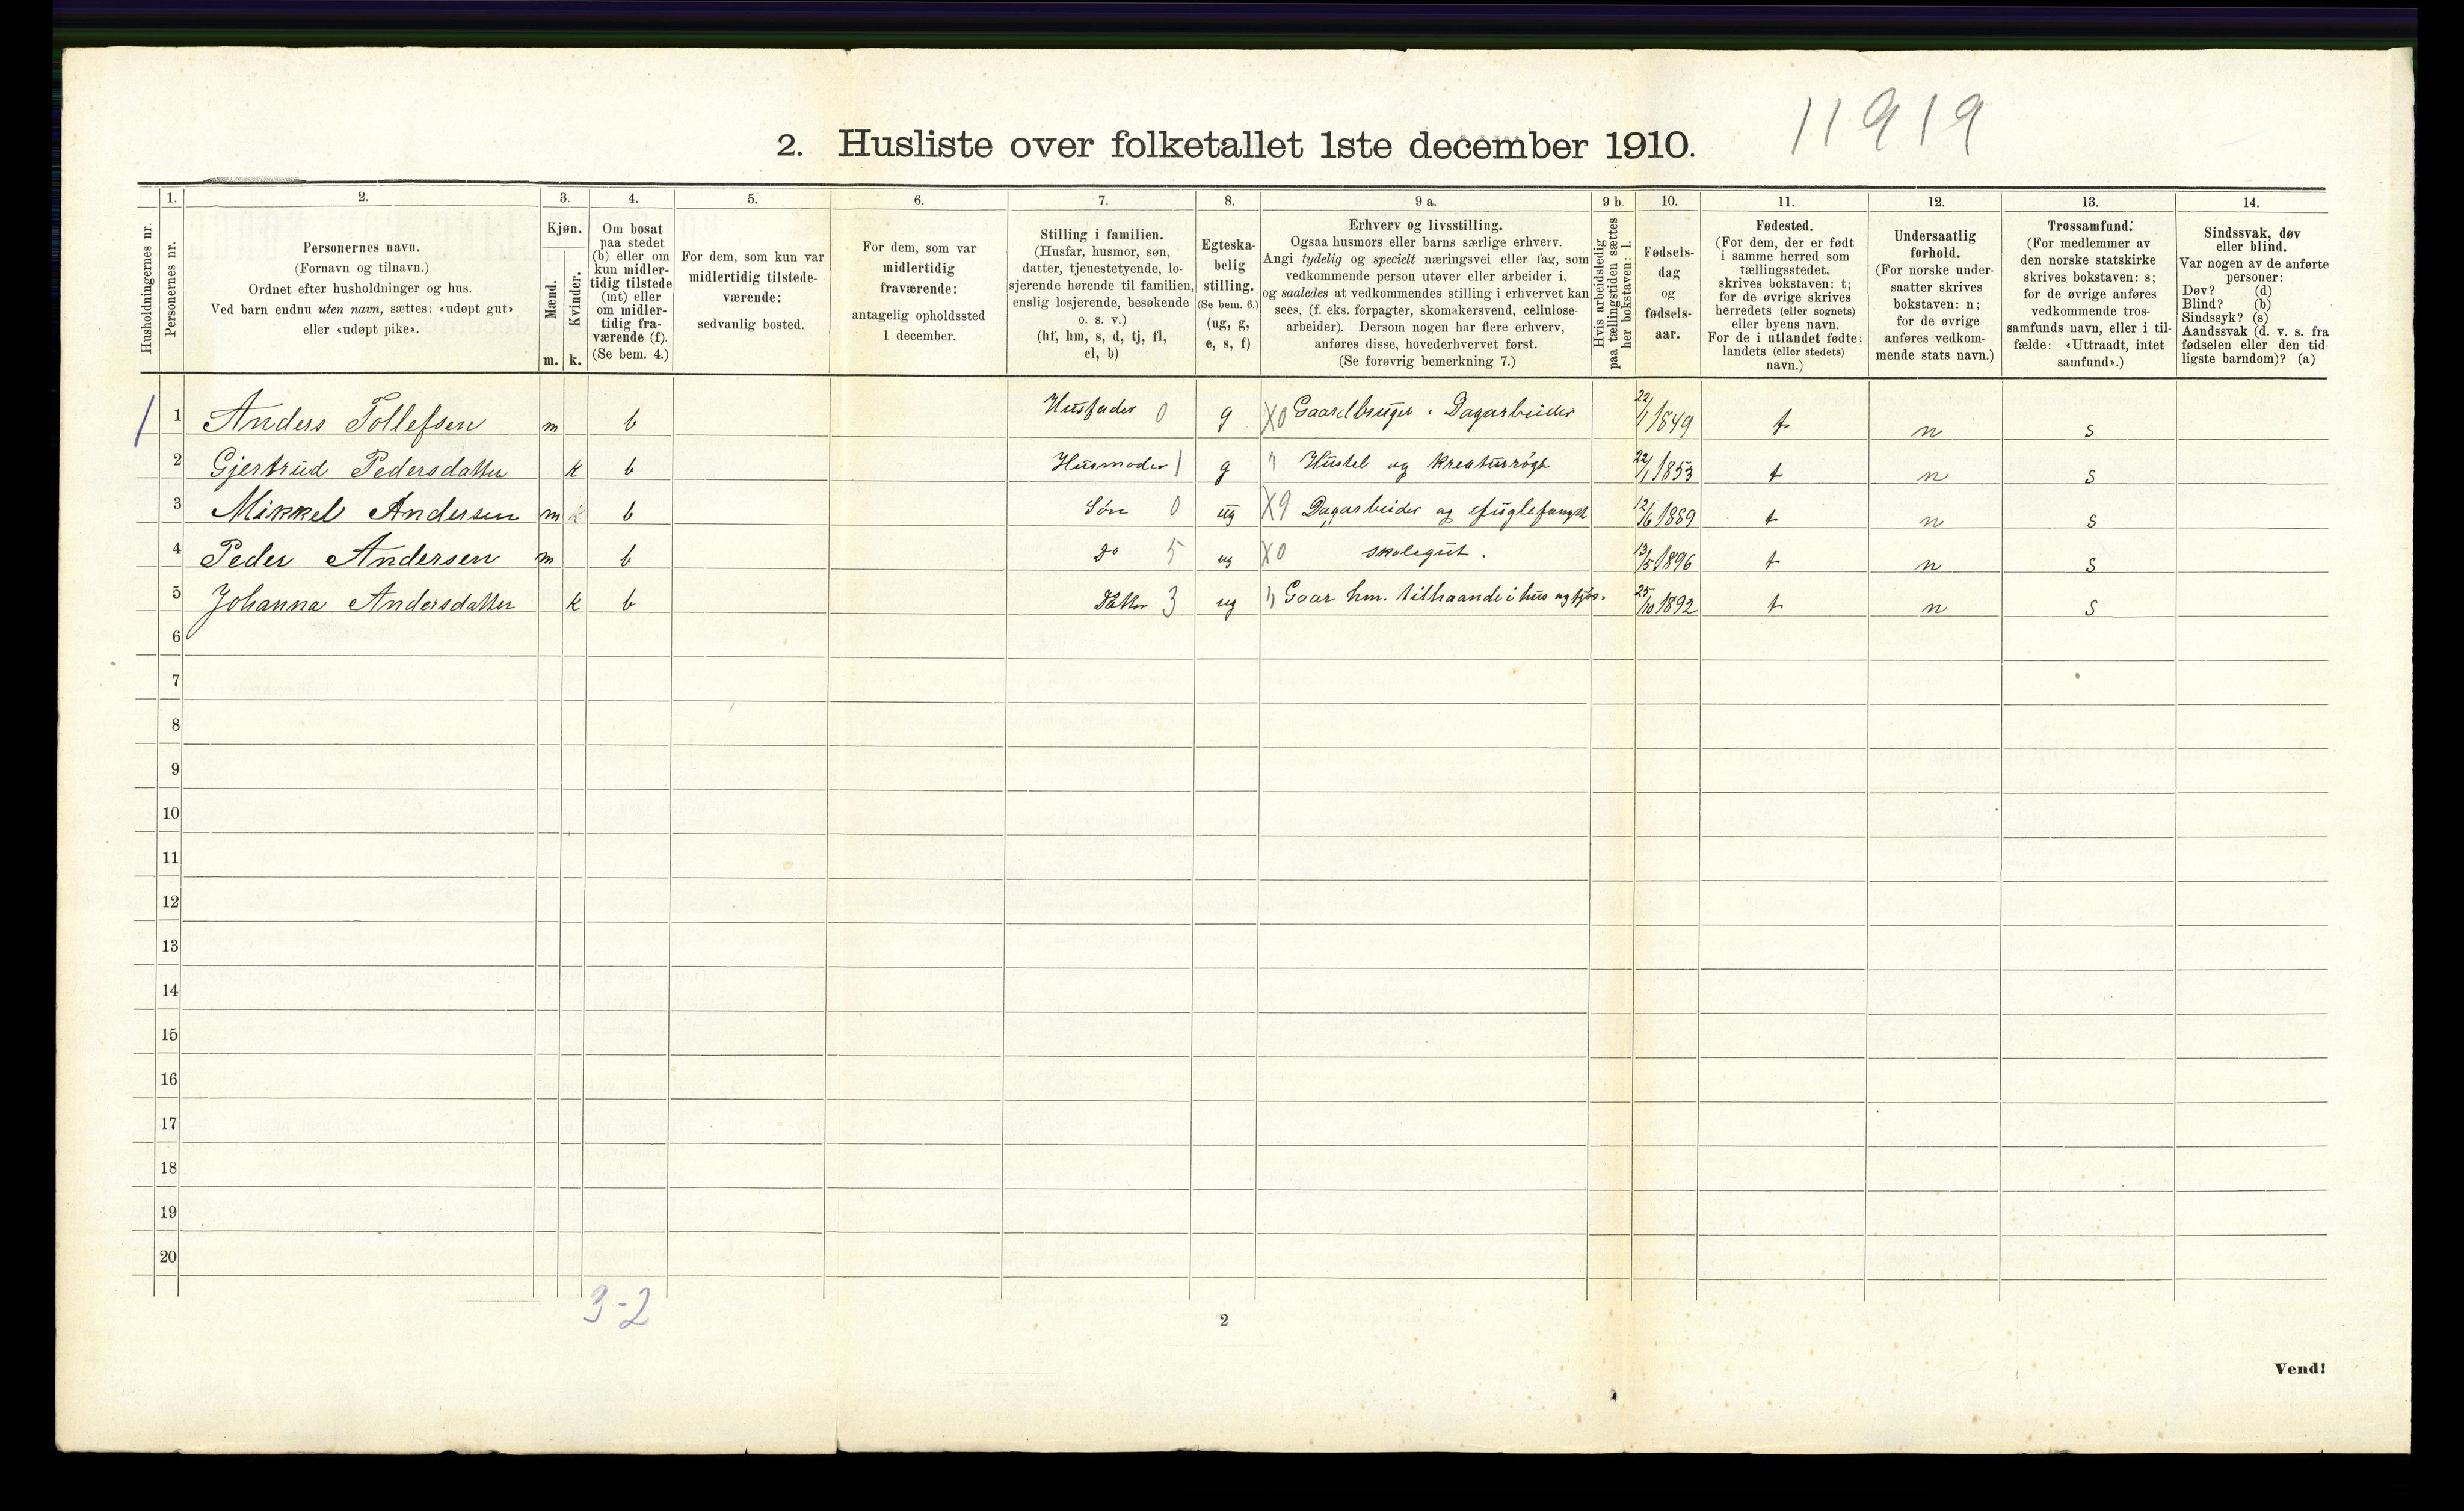 11919
2. Husliste over folketallet 1ste december 1910.
Husholdningernes nr.
1.
Personernes nr.
2.
Personernes navn.
(Fornavn og tilnavn.)
Ordnet efter husholdninger og hus.
Ved barn endnu uten navn, sættes: «udøpt gut»
eller «udøpt pike».
3.
Kjøn.
Mænd.
Kvinder.
m. k.
4.
Om bosat
paa stedet
(b) eller om
kun midler-
tidig tilstede
(mt) eller
om midler-
tidig fra-
værende (f).
(Se bem. 4.)
5.
For dem, som kun var
midlertidig tilstede-
værende:
sedvanlig bosted.
6.
For dem, som var
midlertidig
fraværende:
antagelig opholdssted
1 december.
7.
Stilling i familien.
(Husfar, husmor, søn,
datter, tjenestetyende, lo-
sjerende hørende til familien,
enslig losjerende, besøkende
o. s. v.)
(hf, hm, s, d, tj, fl,
el, b)
8.
Egteska-
belig
stilling.
(Se bem. 6.)
(ug, g,
e, s, f)
9 a.
Erhverv og livsstilling.
Ogsaa husmors eller barns særlige erhverv.
Angi tydelig og specielt næringsvei eller fag, som
vedkommende person utøver eller arbeider i,
og saaledes at vedkommendes stilling i erhvervet kan
sees, (f. eks. forpagter, skomakersvend, cellulose-
arbeider). Dersom nogen har flere erhverv,
anføres disse, hovederhvervet først.
(Se forøvrig bemerkning 7.)
9 b.
Hvis arbeidsledig
paa tællingstiden sættes
her bokstaven: l.
10.
Fødsels-
dag
og
fødsels-
aar.
11.
Fødested.
(For dem, der er født
i samme herred som
tællingsstedet,
skrives bokstaven: t;
for de øvrige skrives
herredets (eller sognets)
eller byens navn.
For de i utlandet fødte:
landets (eller stedets)
navn.)
12.
Undersaatlig
forhold.
(For norske under-
saatter skrives
bokstaven: n;
for de øvrige
anføres vedkom-
mende stats navn.)
13.
Trossamfund.
(For medlemmer av
den norske statskirke
skrives bokstaven: s;
for de øvrige anføres
vedkommende tros-
samfunds navn, eller i til-
fælde: «Uttraadt, intet
samfund».)
14.
Sindssvak, døv
eller blind.
Var nogen av de anførte
personer:
Døv? (d)
Blind? (b)
Sindssyk? (s)
Aandssvak (d. v. s. fra
fødselen eller den tid-
ligste barndom)? (a)
1 1 Anders Tollefsen m b Husfader 0 g X0 Gaardbruger. Dagarbeider 22/1 1849 t n s
2 Gjertrud Pedersdatter k b Husmoder 1 g " Hustel og kreaturrøgt 22/1 1853 t n s
3 Mikkel Andersen m k b Søn 0 ug X9 Dagarbeider og fuglefangst 12/6 1889 t n s
4 Peder Andersen m b Do 5 ug X0 skolegut. 13/5 1896 t n s
5 Johanna Andersdatter k b Datter 3 ug " Gaar hm. tilhaande i hus og fjøs. 25/10 1892 t n s
6
7
8
9
10
11
12
13
14
15
16
17
18
19
20
3-2
2
Vend!